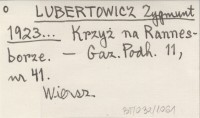 o LUBERTOWICZ Zygmunt
1923... Krzyż na Rannes-
borze. — Gaz. Podh. 11,
nr 41.
Wiersz.